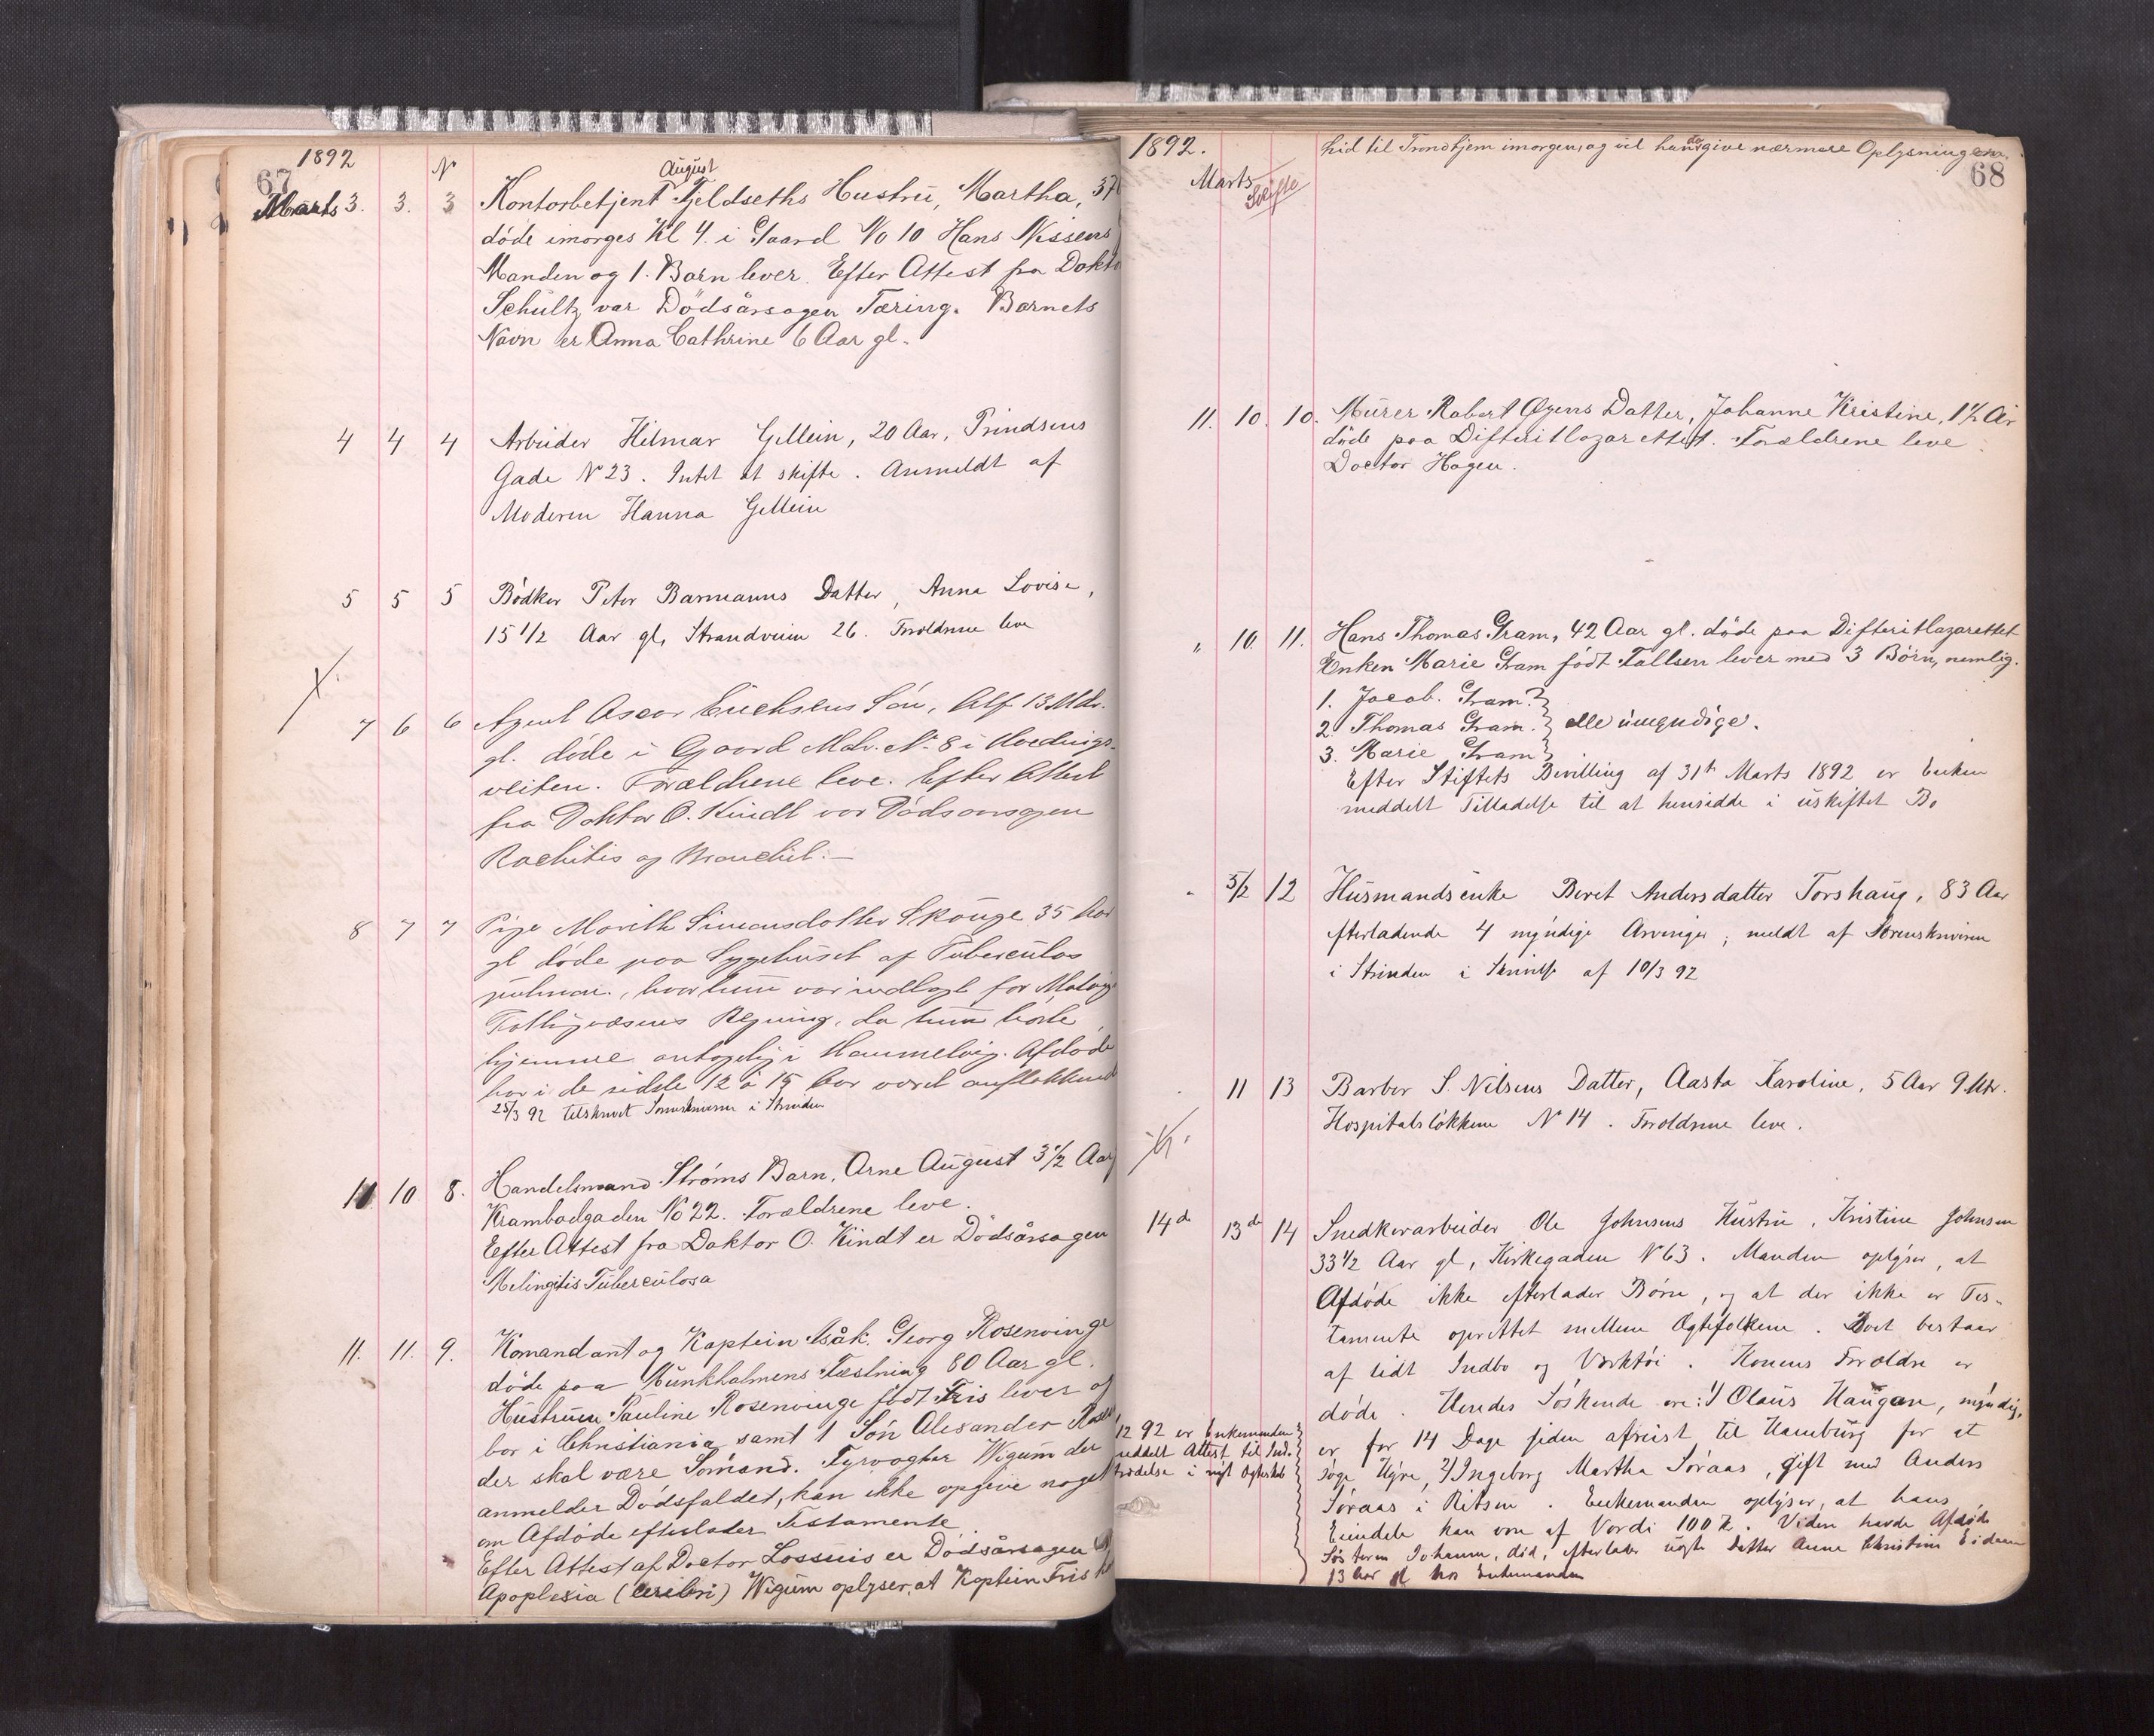 67
1892
N
August
Marts 3. 3. 3 Kontorbetjent Fjeldseths Hustru, Martha, 37
døde imorges Kl 4. i Gaard No 10 Hans Nissens
Manden og 1. Barn lever. Efter Attest fra Dokto
Schultz var Dödsårsagen Tæring. Barnets
Navn er Anna Cathrine 6 Aar gl.
4 4 4 Arbeider Hilmar Gellein, 20 Aar, Prindsens
Gade N 23. Intet at skifte. Anmeldt af
Moderen Hanna Gellein
5 5 5 Bødker Peter Barmanns Datter, Anna Lovise,
15 1/2 Aar gl, Strandveien 26. Forældrene leve
7 6 6 Agent Oscar Erichsens Søn, Alf 13 Mdr.
gl. døde i Gaard Matr. No 8 i
veiten. Forældrene leve. Efter Attest
fra Doktor O. Kindt var Dødsaarsagen
Rachitis og Bronchit. –
8 7 7 Pige Marith Simonsdatter Skouge 35 Aar
gl døde paa Sygehuset af Tuberculos
pulmon., hvor hun var indlagt for Malvig
Fattigvæsens Regning, da hun hørte
hjemme antagelig i Hommelvig. Afdøde
har i de sidste 12 à 15 Aar været omflakkende
25/3 92 tilskrevet Sorenskriveren i Strinden
11 10 8. Handelsmand Strøms Barn, Arne August 3 1/2 Aar
Krambodgaden No 22. Forældrene leve.
Efter Attest fra Doktor O. Kindt er Dødsårsagen
Melingitis Tuberculosa
11. 11. 9. Komandant og Kaptein Isåk. Georg Rosenvinge
døde paa Munkholmens Fæstning 80 Aar gl.
Hustruen Pauline Rosenvinge født Friis lever og
bor i Christiania samt 1 Søn Alexander Rosen
der skal være Sømand. Fyrvogter Wigum der
anmelder Dødsfaldet, kan ikke opgive noget
om Afdøde efterlader Testamente
Efter Attest af Doctor Lossius er Dødsårsagen
Apoplexia (cerebri) Wigum oplyser, at Kaptein Friis
1892.
hid til Trondhjem imorgen, og vil han da give nærmere Oplysninger.
68
Marts
Skifte
11. 10. 10. Murer Robert Øyens Datter, Johanne Kristine, 1 1/2 År
døde paa Difteritlazarettet. Forældrene leve
Doctor Hagen.
" 10. 11. Hans Thomas Gram, 42 Aar gl. døde paa Difteritlazarettet
Enken Marie Gram født Tallsen lever med 3 Børn, nemlig.
1. Jacob. Gram.
2. Thomas Gram. } alle umyndige.
3. Marie Gram
Efter Stiftets Bevilling af 31te Marts 1892 er Enken
meddelt Tilladelse til at hensidde i uskiftet Bo
" 5/2 12 Husmandsenke Beret Andersdatter Torshaug, 83 Aar
efterladende 4 myndige Arvinger; meldt af Sorenskriveren
i Strinden i Skrivelse af 10/3 92
11 13 Barber S. Nilsens Datter, Aasta Karoline, 5 Aar 9 Mdr.
Hospitalsløkken N 14. Forældrene leve.
14de 13de 14 Snedkerarbeider Ole Johnsens Hustru, Kristine Johnsen
33 1/2 Aar gl, Kirkegaden N 63. Manden oplyser, at
Afdøde ikke efterlader Børn, og at der ikke er Tes-
tamente oprettet mellem Ægtefolkene. Boet bestaar
af lidt Indbo og Værktøi. Konens Forældre er
døde. Hendes Søskende ere: 1/ Olaus Haugan, myndig,
er for 14 Dage siden afreist til Hamburg for at
søge Hyre, 2/ Ingeborg Martha Søraas, gift med Anders
Søraas i Ritsen. Enkemanden oplyser, at hans
Eiendele kan være af Værdi 100 Kr. Viden havde Afdøde
Søsteren Johanna, død, efterlader uægte Datter Anne Christine Eidem
13 Aar gl hos Enkemanden
12 92 er Enkemanden
eddelt Attest til Ind-
trædelse i nyt Ægteskab